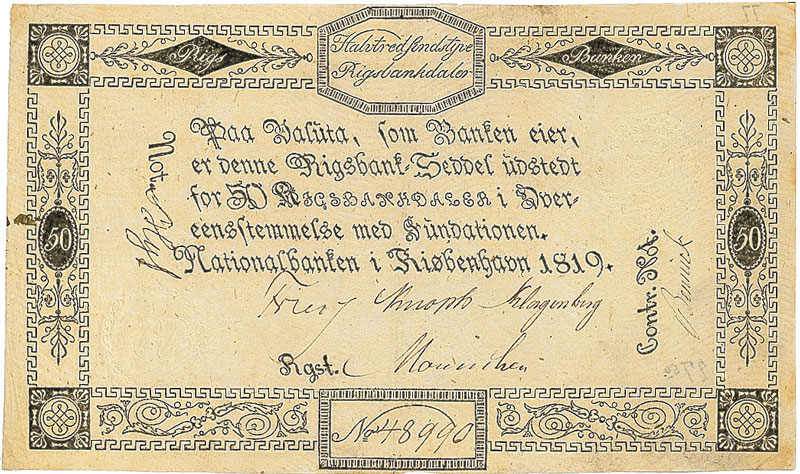 Rigs
Halvtredsindstyve
Rigsbankdaler
Banken
Paa Valuta, som Banken eier,
er denne Rigsbank-Seddel udstedt
for 50 RIGSBANKDALER i Over-
eensstemmelse med Fundationen.
Nationalbanken i Kiøbenhavn 1819.
Not.
50
50
Contr. Not.
Knoph Klagenberg
Rgst.
No 48990
77